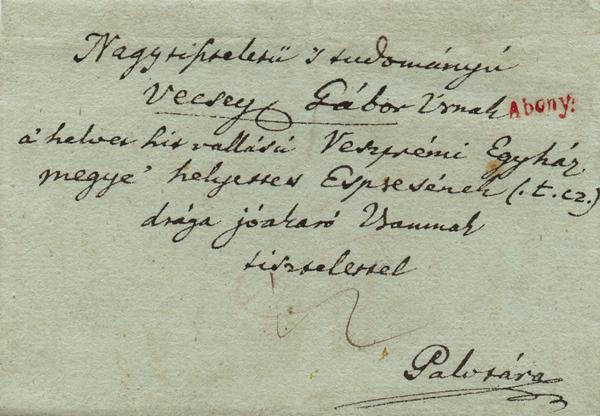 Nagytiszteletü 's tudományú
Vecsey Gábor Urnak Abony:
a' helvet hit vallású Veszprémi Egyház
megye' helyettes Esperesének (.t.cz.)
drága jóakaró Uramnak
tisztelettel
Palotára